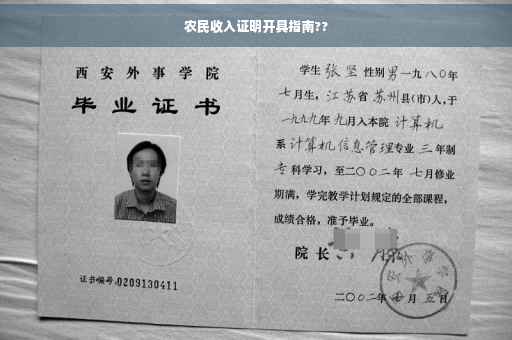 农民收入证明开具指南??
西安外事学院
毕业证书
证书编号:0209130411
学生张坚性别男一九八〇年
七月生，江苏省苏州县(市)人,于
一九九九年九月入本院计算机
系计算机信息管理专业三年制
专科学习，至二〇〇二年七月修业
期满，学完教学计划规定的全部课程，
成绩合格，准予毕业。
院长
二〇〇二年 月五日